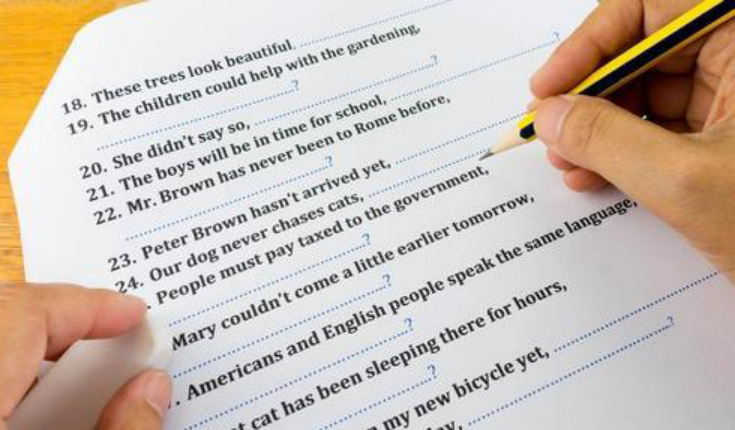 18. These trees look beautiful, ........................................?
19. The children could help with the gardening,
........................................?
20. She didn't say so, ........................................?
21. The boys will be in time for school, ........................................
22. Mr. Brown has never been to Rome before,
........................................?
23. Peter Brown hasn't arrived yet, ........................................
24. Our dog never chases cats, ........................................
. People must pay taxed to the government,
........................................?
Mary couldn't come a little earlier tomorrow,
........................................?
. Americans and English people speak the same language,
........................................?
t cat has been sleeping there for hours,
........................................?
my new bicycle yet, ........................................?